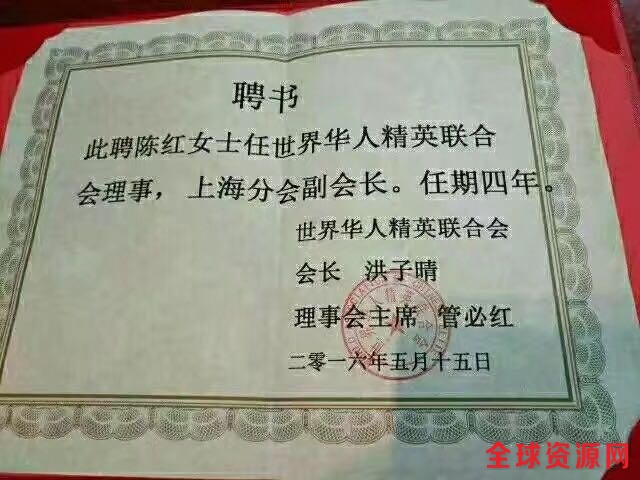 聘书
此聘陈红女士任世界华人精英联合
会理事，上海分会副会长。任期四年。
世界华人精英联合会
会长 洪子晴
理事会主席 管必红
二零一六年五月十五日
全球资源网